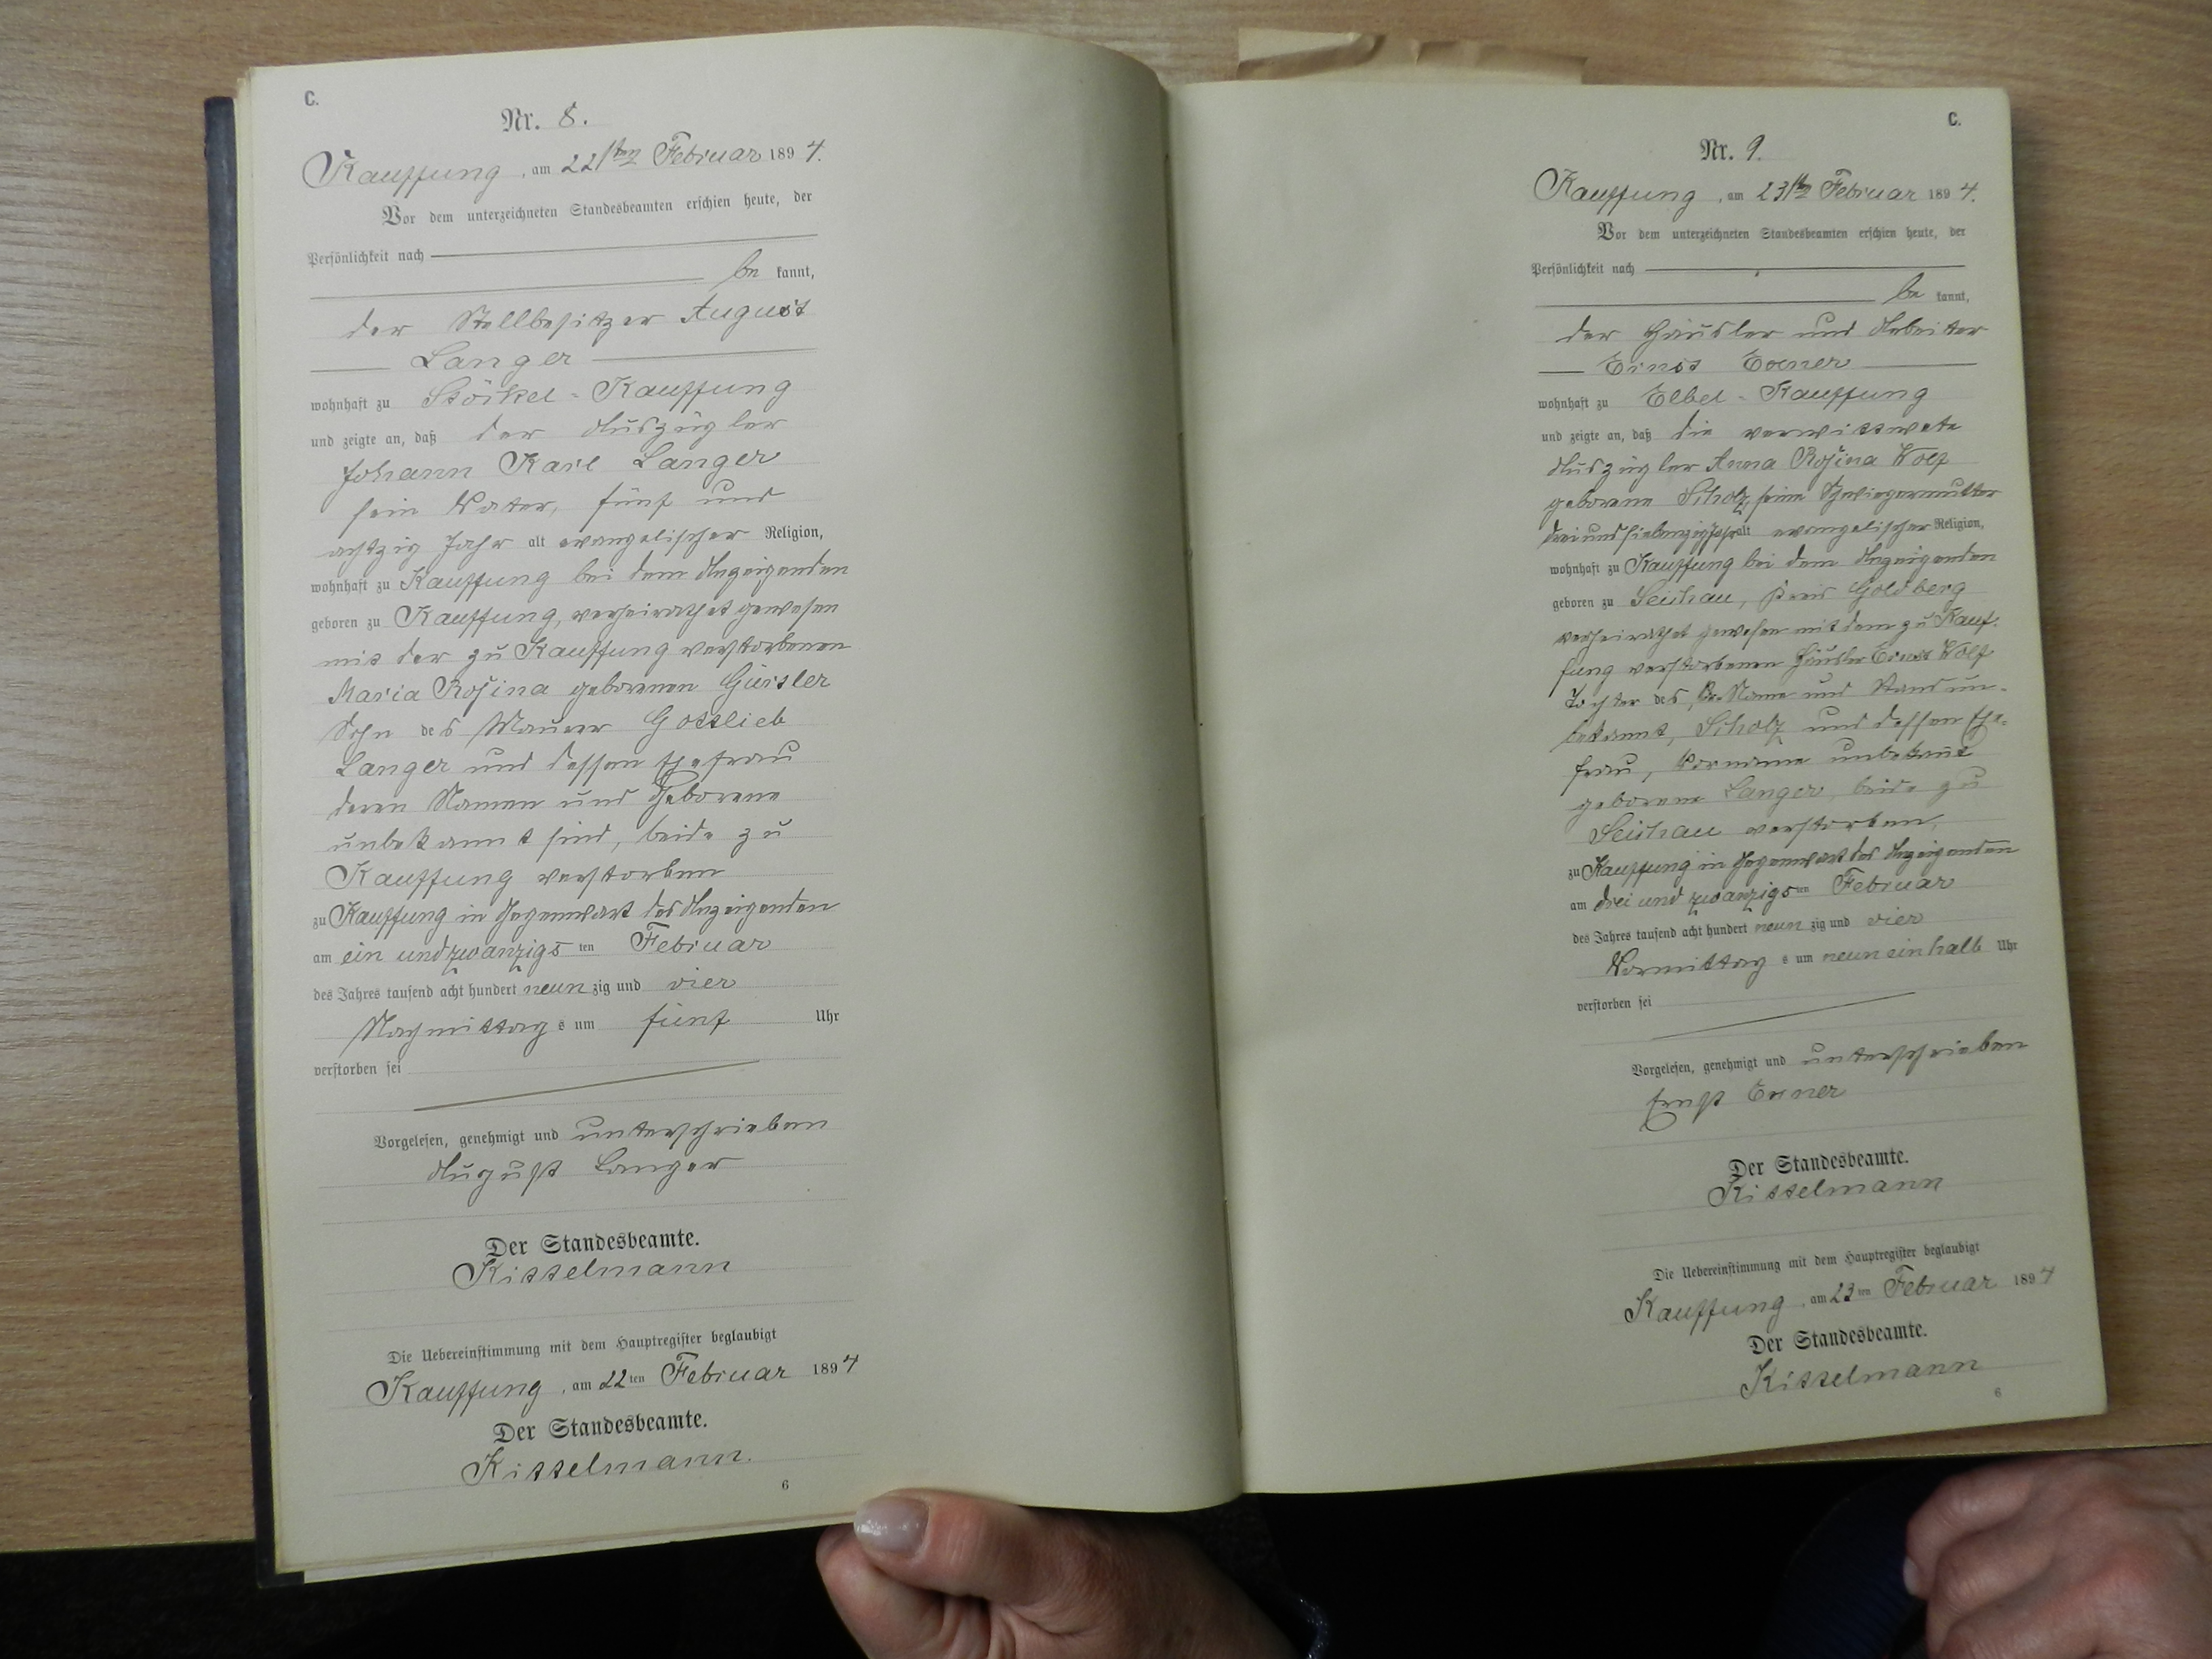 C.
Nr. 8.
Kauffung, am 22sten Februar 1894.
Vor dem unterzeichneten Standesbeamten erschien heute, der
Persönlichkeit nach
be kannt,
der Stellbesitzer August
Langer
wohnhaft zu Stöckel-Kauffung
und zeigte an, daß der Auszügler
Johann Karl Langer
sein Vater, fünf und
achtzig Jahr alt evangelischer Religion,
wohnhaft zu Kauffung bei dem Anzeigenden
geboren zu Kauffung, verheirathet gewesen
mit der zu Kauffung verstorbenen
Maria Rosina geborenen Geisler
Sohn des Maurer Gottlieb
Langer und dessen Ehefrau
deren Namen und Geborene
unbekannt sind, beide zu
Kauffung verstorben
zu Kauffung in Gegenwart des Anzeigenden
am ein und zwanzigsten Februar
des Jahres tausend acht hundert neunzig und vier
Nachmittags um fünf Uhr
verstorben sei
Vorgelesen, genehmigt und unterschrieben
August Langer
Der Standesbeamte.
Kittelmann
Die Uebereinstimmung mit dem Hauptregister beglaubigt
Kauffung, am 22ten Februar 1894
Der Standesbeamte.
Kittelmann.
6
C.
Nr. 9.
Kauffung, am 23ten Februar 1894.
Vor dem unterzeichneten Standesbeamten erschien heute, der
Persönlichkeit nach
be kannt,
der Häusler und Arbeiter
Ernst Exner
wohnhaft zu Elbel-Kauffung
und zeigte an, daß die verwittwete
Auszügler Anna Rosina Wolf
geborene Scholz, seine Schwiegermutter
drei und siebenzig Jahr alt evangelischer Religion,
wohnhaft zu Kauffung bei dem Anzeigenden
geboren zu Seichau, Kreis Goldberg
verheirathet gewesen mit dem zu Kauf-
fung verstorbenen Häusler Ernst Wolf
Tochter des, Name und Stand un-
bekannt, Scholz und dessen Ehe-
frau, Vorname unbekannt
geborene Langer, beide zu
Seichau verstorben,
zu Kauffung in Gegenwart des Anzeigenden
am drei und zwanzigsten Februar
des Jahres tausend acht hundert neunzig und vier
Vormittags um neun ein halb Uhr
verstorben sei
Vorgelesen, genehmigt und unterschrieben
Ernst Exner
Der Standesbeamte.
Kittelmann
Die Uebereinstimmung mit dem Hauptregister beglaubigt
Kauffung, am 23ten Februar 1894
Der Standesbeamte.
Kittelmann
6